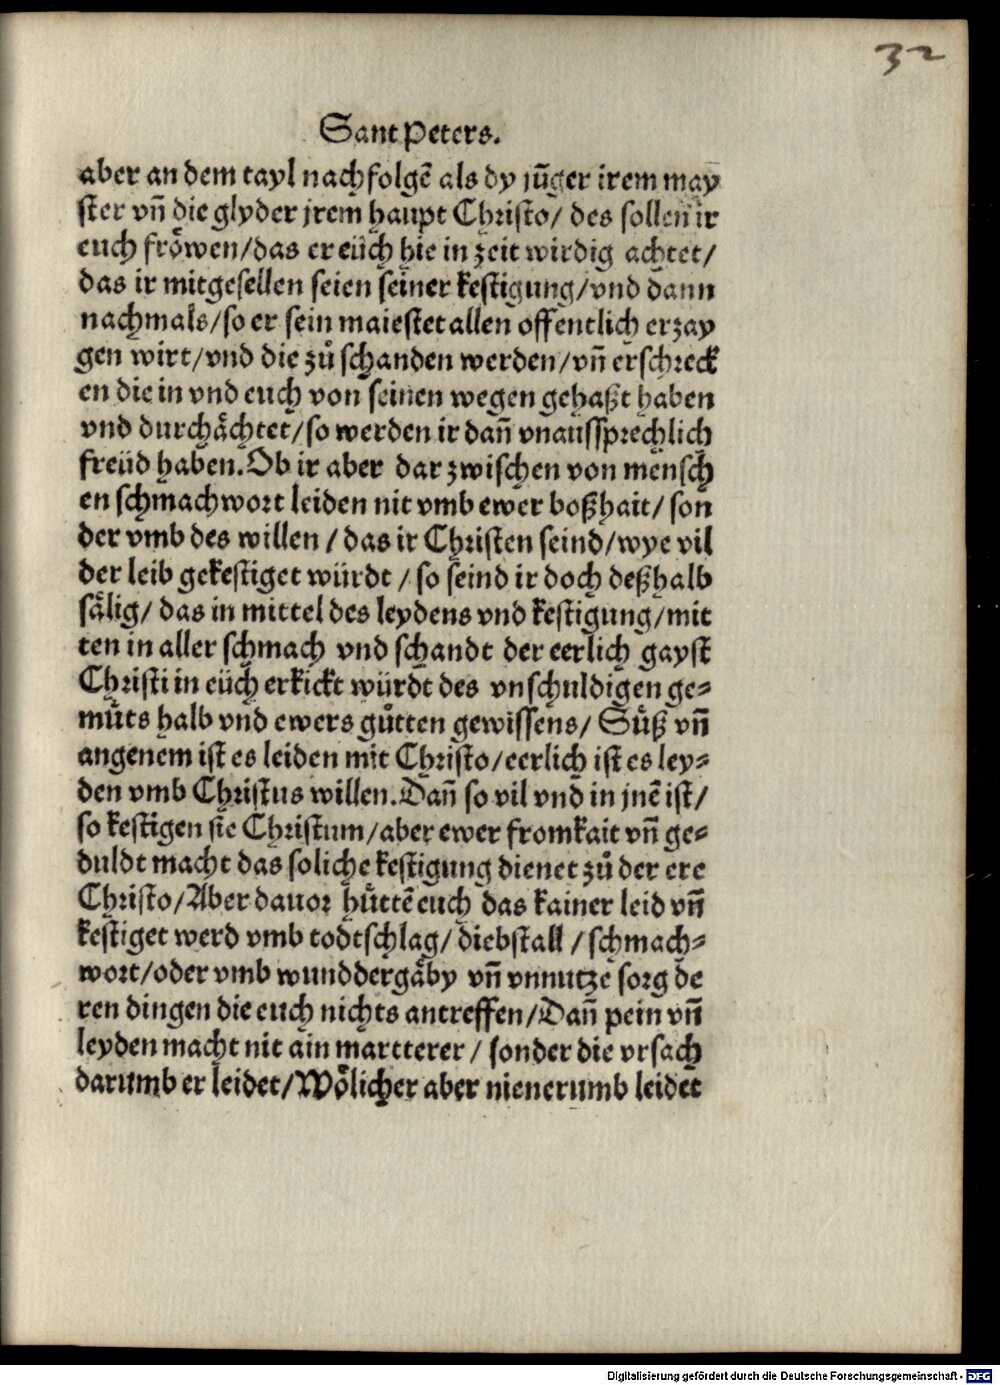 32
Sant Peters.
aber an dem tayl nachfolgē als dy jűger irem may
ster vn̄ die glyder jrem haupt Christo/ des sollen ir
euch frőwen/das er eüch hie in zeit wirdig achtet/
das ir mitgesellen seien seiner kestigung/vnd dann
nachmals/so er sein maiestet allen offentlich erzay
gen wirt/vnd die zů schanden werden/vn̄ erschreck
en die in vnd euch von seinen wegen gehaßt haben
vnd durchåchtet/so werden ir dan̄ vnaussprechlich
freüd haben. Ob ir aber dar zwischen von mensch
en schmachwort leiden nit vmb ewer boßhait/ son
der vmb des willen / das ir Christen seind/wye vil
der leib gekestiget würdt / so seind ir doch deßhalb
sålig/ das in mittel des leydens vnd kestigung/mit
ten in aller schmach vnd schandt der eerlich gayst
Christi in eüch erkickt würdt des vnschuldigen ge⸗
můts halb vnd ewers gůtten gewissens/ Sůß vn̄
angenem ist es leiden mit Christo/eerlich ist es ley⸗
den vmb Christus willen. Dan̄ so vil vnd in jnē ist/
so kestigen sie Christum/aber ewer fromkait vn̄ ge⸗
duldt macht das soliche kestigung dienet zů der ere
Christo/Aber dauor hůttē euch das kainer leid vn̄
kestiget werd vmb todtschlag/ diebstall / schmach⸗
wort/oder vmb wunddergåby vn̄ vnnutze sorg de
ren dingen die euch nichts antreffen/Dan̄ pein vn̄
leyden macht nit ain martterer / sonder die vrsach
darumb er leidet/Wőlicher aber nienerumb leidet
Digitalisierung gefördert durch die Deutsche Forschungsgemeinschaft - DFG